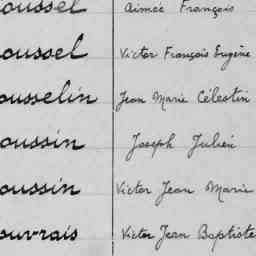 oussel Aimée François
oussel Victor François Eugène
ousselin Jean Marie Célestin
oussin Joseph Julien
oussin Victor Jean Marie
ouvrais Victor Jean Baptiste